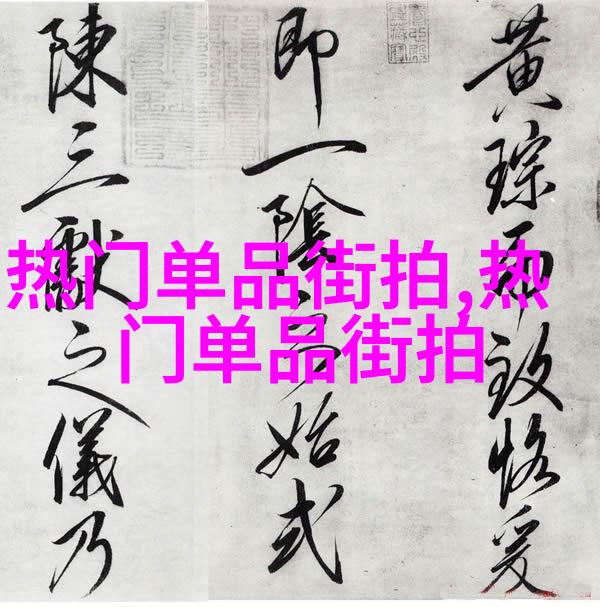 黄琮而致恪爰
即一陰始式
陳三獻之儀乃
热门单品街拍,热
门单品街拍